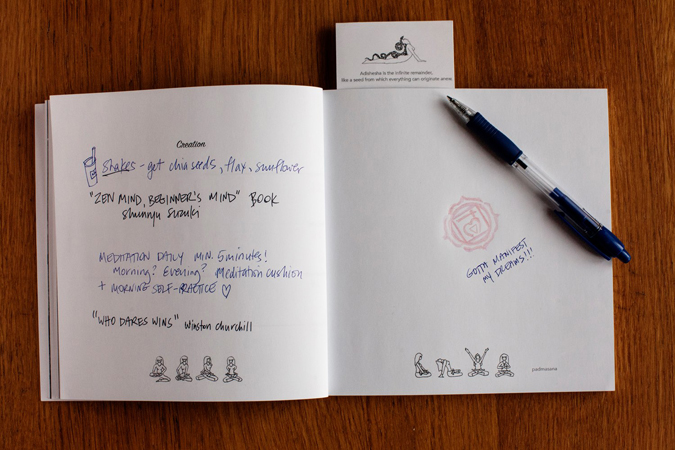 Adishesha is the infinite remainder,
like a seed from which everything can originate anew.
Creation
Shakes - get chia seeds, flax, sunflower
"ZEN MIND, BEGINNER'S MIND" BOOK
Shunryu Suzuki
MEDITATION DAILY MIN. 5 minutes!
Morning? Evening? Meditation cushion
+ MORNING SELF-PRACTICE ♡
"WHO DARES WINS" Winston Churchill
GOTTA MANIFEST
MY DREAMS!!!
padmasana